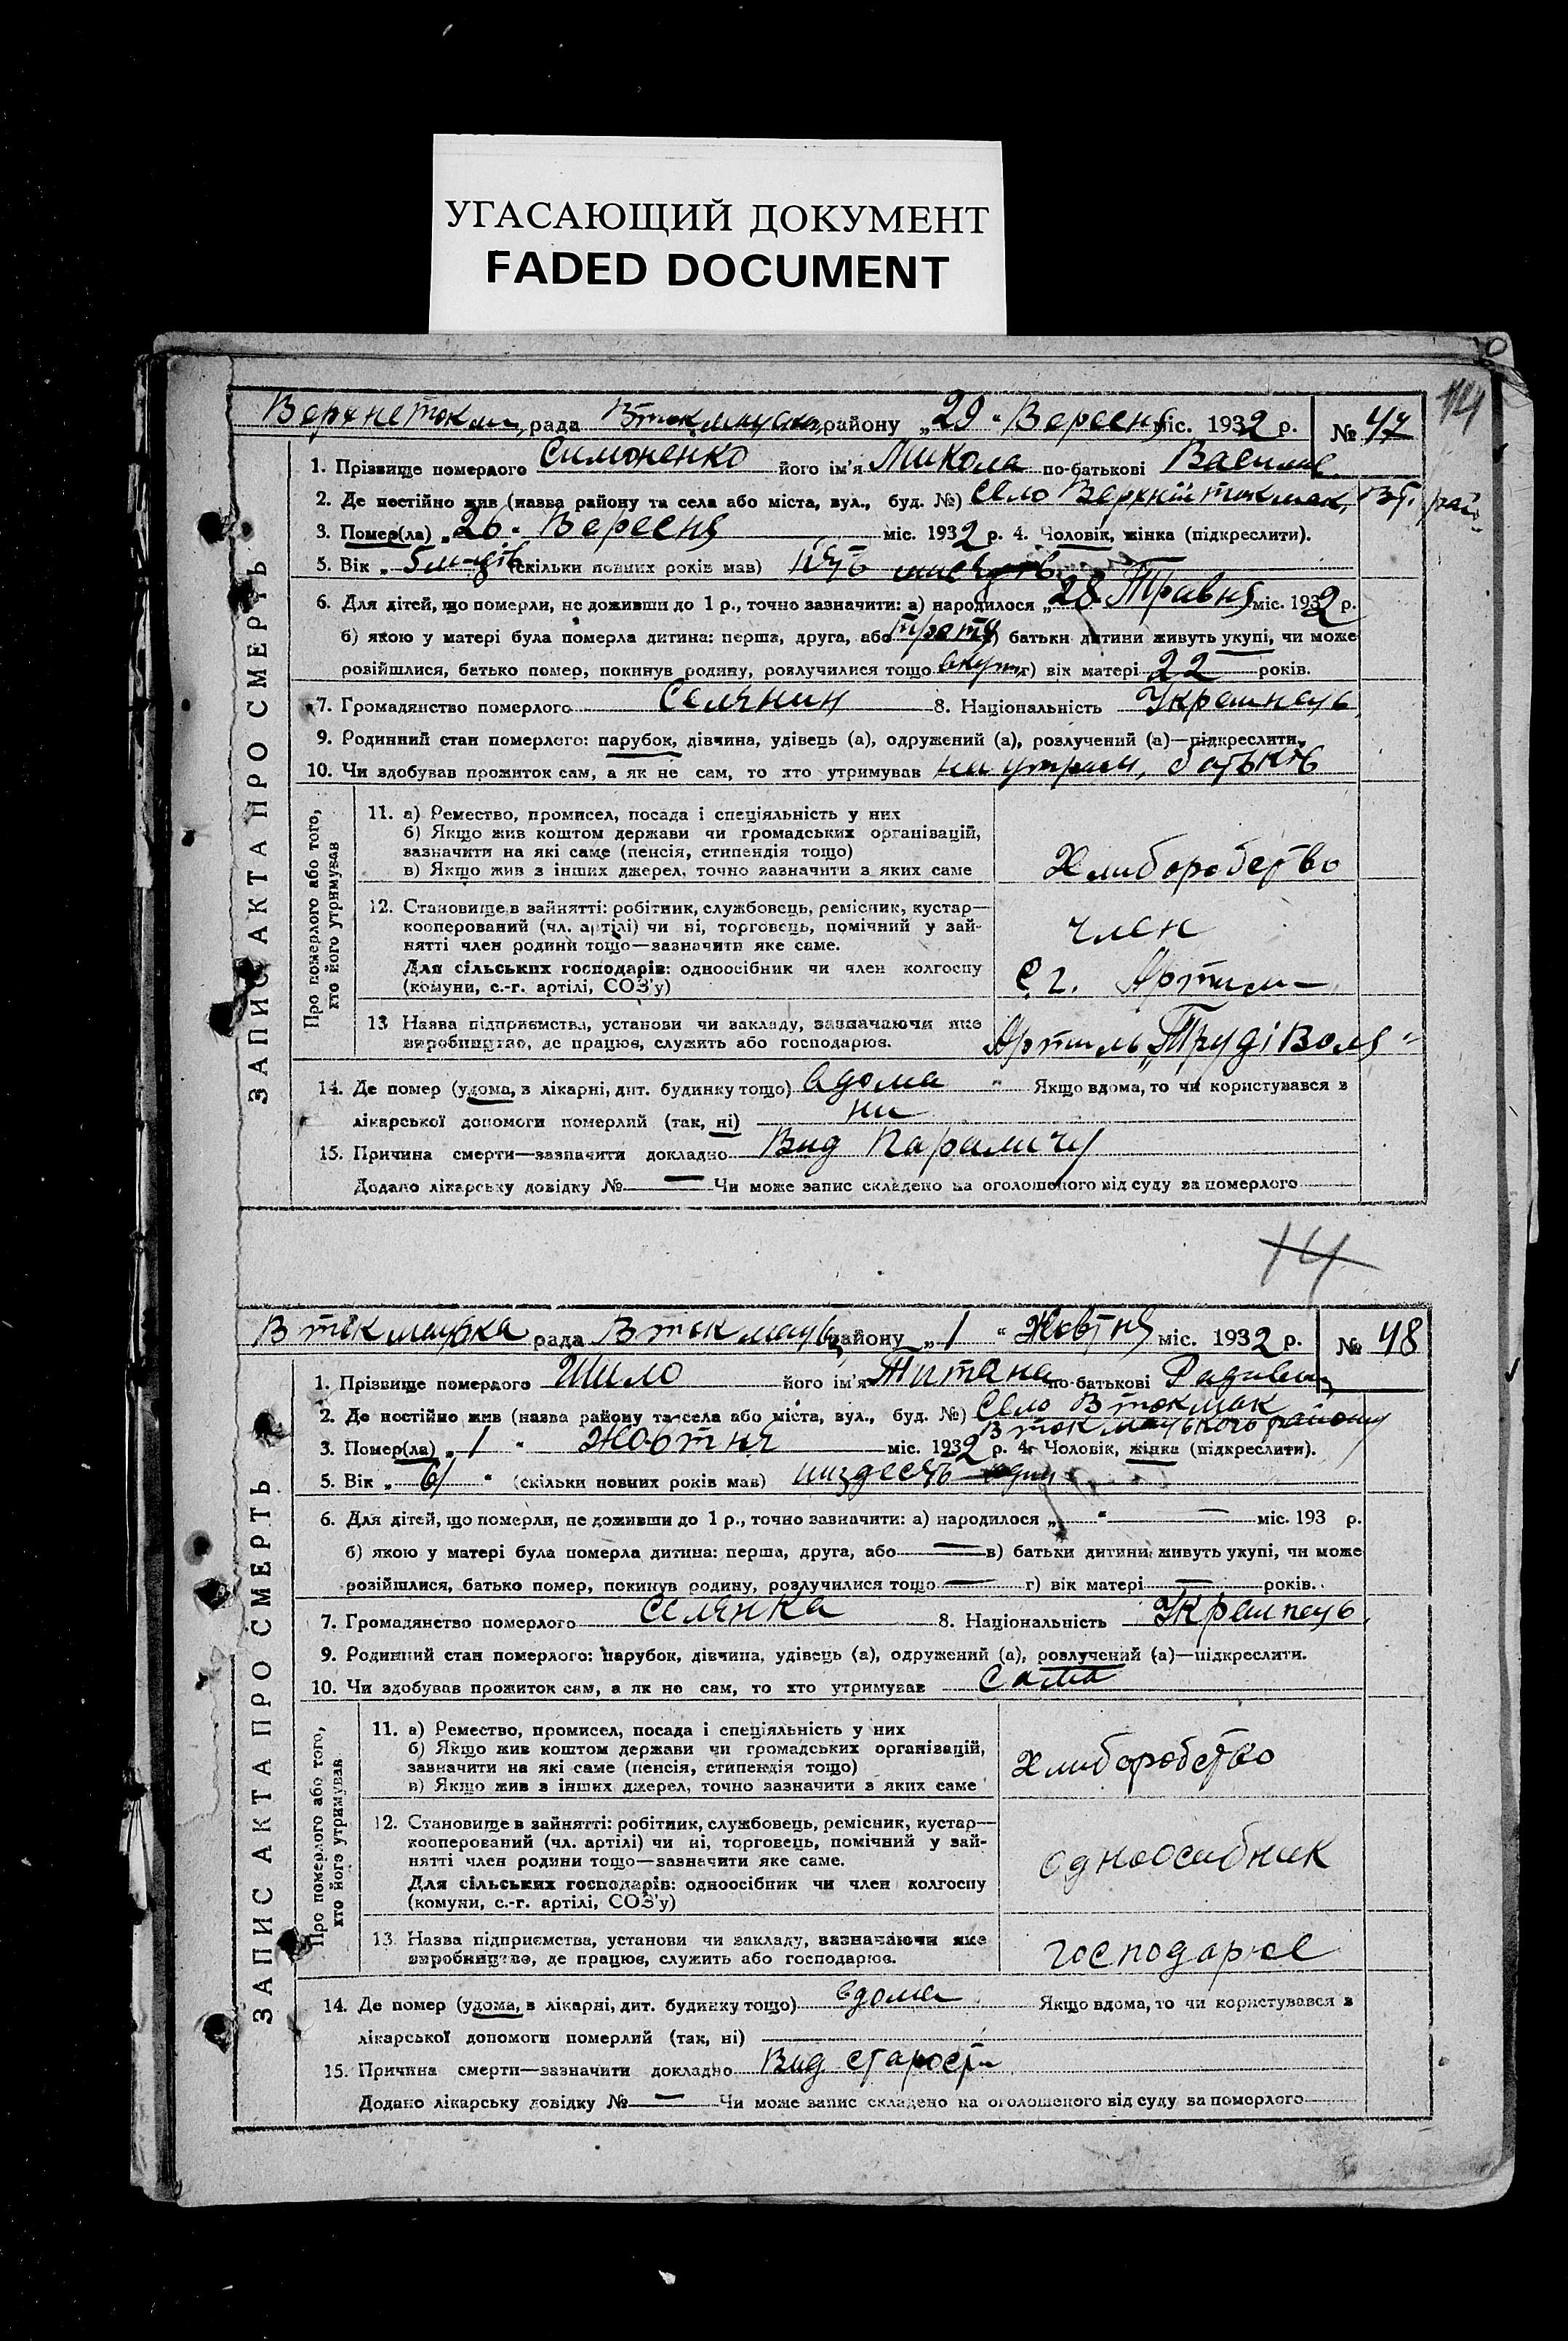 УГАСАЮЩИЙ ДОКУМЕНТ
FADED DOCUMENT
ЗАПИС АКТА ПРО СМЕРТЬ
рада району „29“ Вересня міс. 1932 р. № 47
1. Прізвище померлого Симоненко його ім'я Микола по-батькові
2. Де постійно жив (назва району та села або міста, вул., буд. №) село Верхній токмак, Вт. рай
3. Помер(ла) „26“ Вересня міс. 1932 р. 4. Чоловік, жінка (підкреслити).
5. Вік „ (скільки повних років мав)
6. Для дітей, що померли, не доживши до 1 р., точно зазначити: а) народилося „28 Травня міс. 1932 р.
б) якою у матері була померла дитина: перша, друга, або батьки дитини живуть укупі, чи може
розійшлися, батько помер, покинув родину, розлучилися тощо г) вік матері 22 років.
7. Громадянство померлого Селянин 8. Національність
9. Родинний стан померлого: парубок, дівчина, удівець (а), одружений (а), розлучений (а)—підкреслити.
10. Чи здобував прожиток сам, а як не сам, то хто утримував на утрим, батьків
Про померлого або того, хто його утримував
11. а) Ремество, промисел, посада і спеціяльність у них
б) Якщо жив коштом держави чи громадських організацій,
зазначити на які саме (пенсія, стипендія тощо)
в) Якщо жив з інших джерел, точно зазначити з яких саме
Хлиборобство
12. Становище в зайнятті: робітник, службовець, ремісник, кустар—
кооперований (чл. артілі) чи ні, торговець, помічний у зай-
нятті член родини тощо—зазначити яке саме.
Для сільських господарів: одноосібник чи член колгоспу
(комуни, с.-г. артілі, СОЗ'у)
член
с. г. Артили
13. Назва підприємства, установи чи закладу, зазначаючи яке
виробництво, де працює, служить або господарює.
Артиль „Труд і Воля“
14. Де помер (удома, в лікарні, дит. будинку тощо) вдома Якщо вдома, то чи користувався з
лікарської допомоги померлий (так, ні) ни
15. Причина смерти—зазначити докладно Вид Параличу
Додано лікарську довідку № — Чи може запис складено на оголошеного від суду за померлого
14
ЗАПИС АКТА ПРО СМЕРТЬ
рада району „1“ Жовтня міс. 1932 р. № 48
1. Прізвище померлого Шило його ім'я по-батькові
2. Де постійно жив (назва району та села або міста, вул., буд. №) Село В токмак
В токмацького району
3. Помер(ла) „1“ Жовтня міс. 1932 р. 4. Чоловік, жінка (підкреслити).
5. Вік „61“ (скільки повних років мав) шиздесять один
6. Для дітей, що померли, не доживши до 1 р., точно зазначити: а) народилося „ “ — міс. 193 р.
б) якою у матері була померла дитина: перша, друга, або — в) батьки дитини живуть укупі, чи може
розійшлися, батько помер, покинув родину, розлучилися тощо — г) вік матері — років.
7. Громадянство померлого Селянка 8. Національність
9. Родинний стан померлого: парубок, дівчина, удівець (а), одружений (а), розлучений (а)—підкреслити.
10. Чи здобував прожиток сам, а як не сам, то хто утримував Сама
Про померлого або того, хто його утримував
11. а) Ремество, промисел, посада і спеціяльність у них
б) Якщо жив коштом держави чи громадських організацій,
зазначити на які саме (пенсія, стипендія тощо)
в) Якщо жив з інших джерел, точно зазначити з яких саме
Хлиборобство
12. Становище в зайнятті: робітник, службовець, ремісник, кустар—
кооперований (чл. артілі) чи ні, торговець, помічний у зай-
нятті член родини тощо—зазначити яке саме.
Для сільських господарів: одноосібник чи член колгоспу
(комуни, с.-г. артілі, СОЗ'у)
одноосибник
13. Назва підприємства, установи чи закладу, зазначаючи яке
виробництво, де працює, служить або господарює.
господарює
14. Де помер (удома, в лікарні, дит. будинку тощо) вдома Якщо вдома, то чи користувався з
лікарської допомоги померлий (так, ні)
15. Причина смерти—зазначити докладно Вид старости
Додано лікарську довідку № — Чи може запис складено на оголошеного від суду за померлого